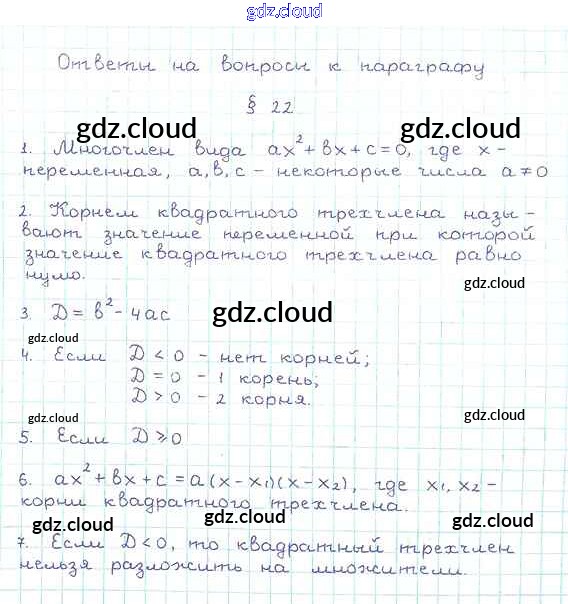 gdz.cloud
Ответы на вопросы к параграфу
§ 22
gdz.cloud
gdz.cloud
1. Многочлен вида ax²+bx+c=0, где x -
переменная, a,b,c - некоторые числа a≠0
2. Корнем квадратного трехчлена назы-
вают значение переменной при которой
значение квадратного трехчлена равно
нулю.
gdz.cloud
3. D = b² - 4ac
gdz.cloud
gdz.cloud
4. Если D < 0 - нет корней;
gdz.cloud
D = 0 - 1 корень;
D > 0 - 2 корня.
gdz.cloud
gdz.cloud
5. Если D ⩾ 0
6. ax²+bx+c = a(x-x₁)(x-x₂), где x₁, x₂ -
корни квадратного трехчлена.
gdz.cloud
gdz.cloud
gdz.cloud
7. Если D<0, то квадратный трехчлен
нельзя разложить на множители.